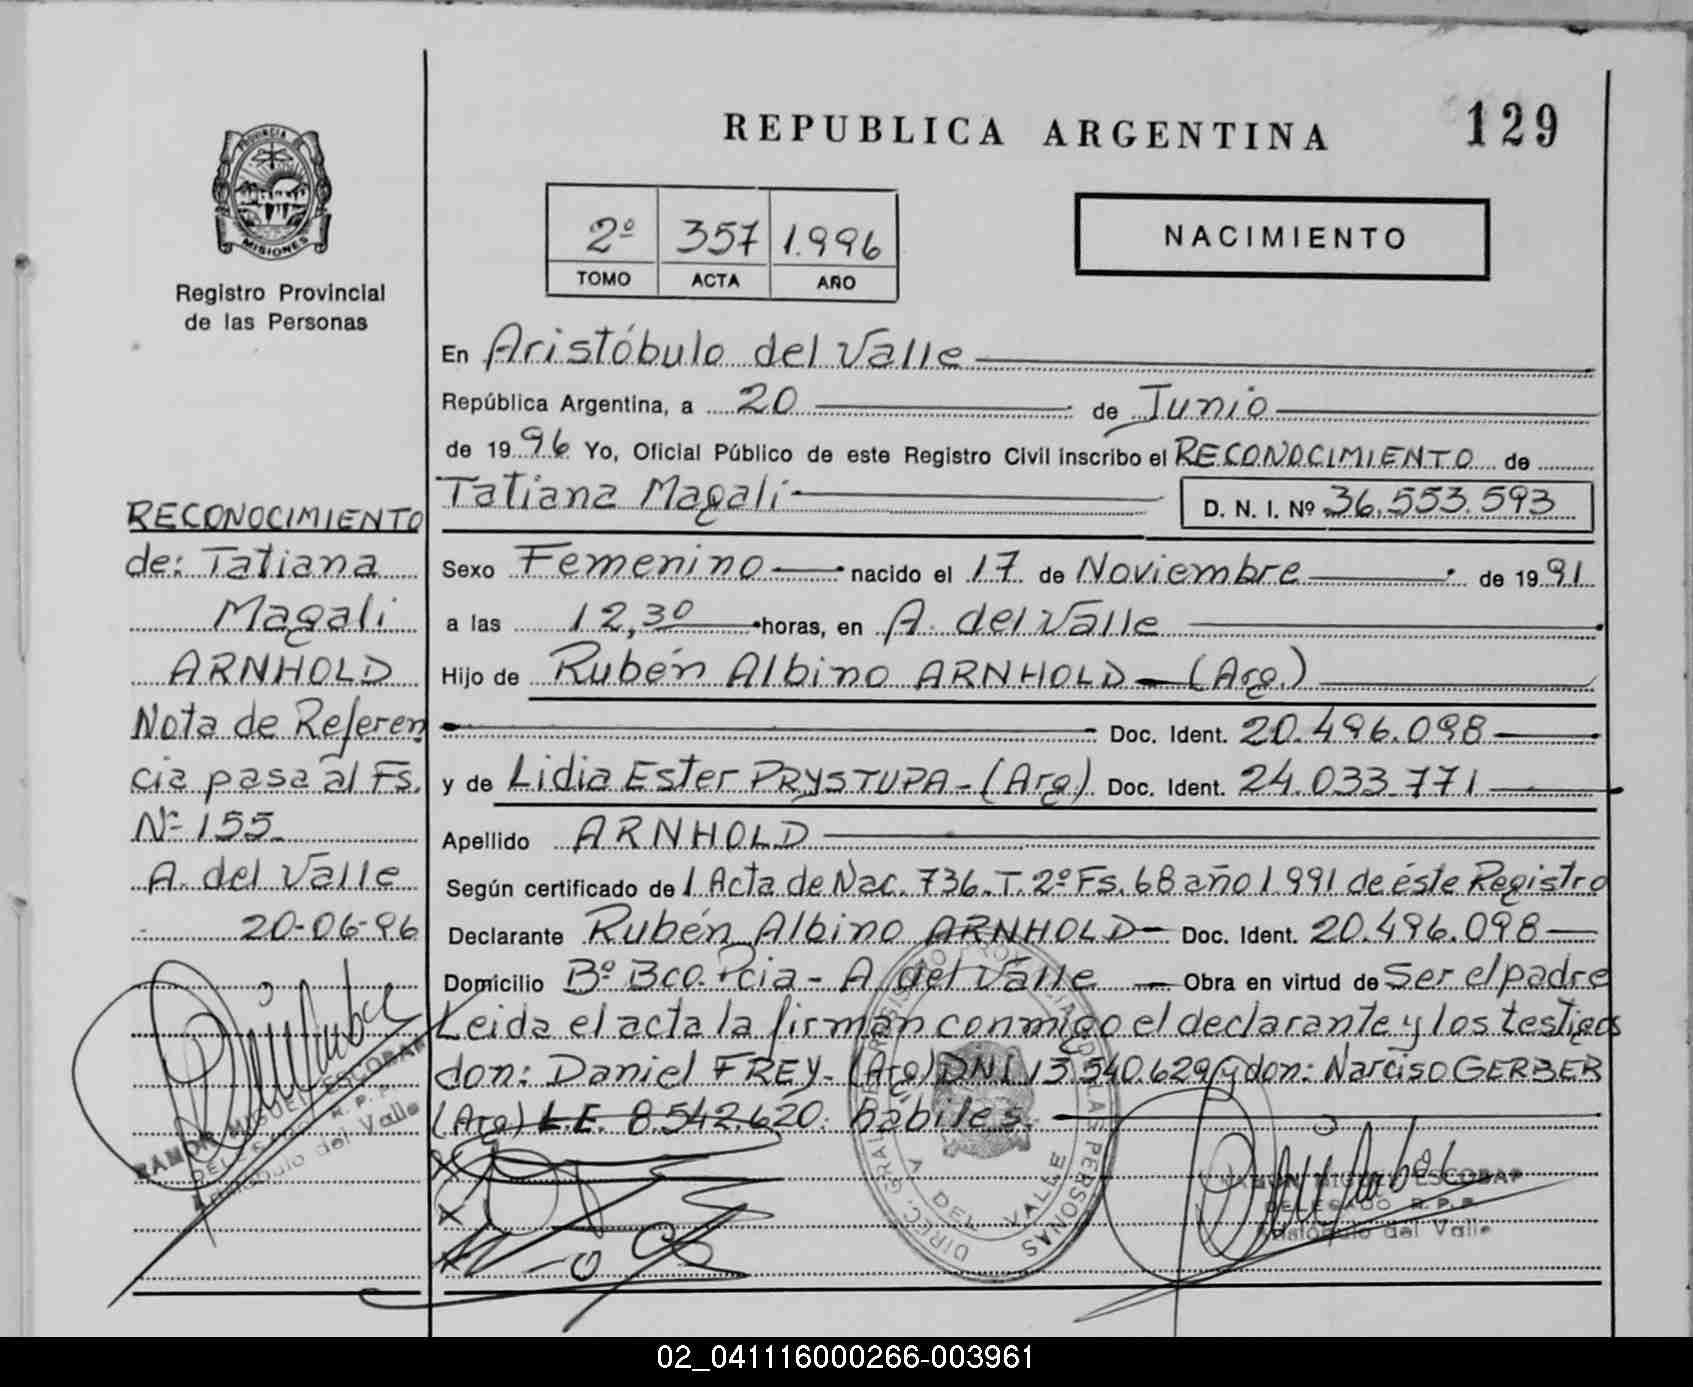 REPUBLICA ARGENTINA
129
PROVINCIA DE
MISIONES
Registro Provincial
de las Personas
2º 357 1.996
TOMO ACTA AÑO
NACIMIENTO
En Aristóbulo del Valle
República Argentina, a 20 de Junio
de 1996 Yo, Oficial Público de este Registro Civil inscribo el RECONOCIMIENTO de
Tatiana Magali D. N. I. Nº 36.553.593
Sexo Femenino nacido el 17 de Noviembre de 1991
a las 12,30 horas, en A. del Valle
Hijo de Rubén Albino ARNHOLD - (Arg.)
Doc. Ident. 20.496.098
y de Lidia Ester PRYSTUPA - (Arg.) Doc. Ident. 24.033.771
Apellido ARNHOLD
Según certificado de 1 Acta de Nac. 736. T. 2º Fs. 68 año 1.991 de éste Registro
Declarante Rubén Albino ARNHOLD - Doc. Ident. 20.496.098
Domicilio Bº Bco. Pcia - A. del Valle - Obra en virtud de Ser el padre
Leida el acta la firman conmigo el declarante y los testigos
don: Daniel FREY - (Arg) DNI 13.540.629 y don: Narciso GERBER
(Arg) L.E. 8.542.620. hábiles.
RECONOCIMIENTO
de: Tatiana
Magali
ARNHOLD
Nota de Referen
cia pasa al Fs.
Nº 155
A. del Valle
20-06-96
RAMON MIGUEL ESCOBAR
DELEGADO R.P.P.
Aristóbulo del Valle
DIREC. GRAL. REGISTRO PROVINCIAL DE LAS PERSONAS
A DEL VALLE
RAMON MIGUEL ESCOBAR
DELEGADO R.P.P.
Aristóbulo del Valle
02_041116000266-003961